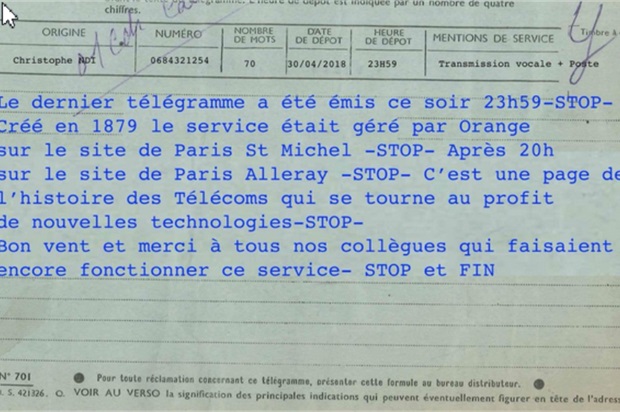 L'heure de dépôt est indiquée par un nombre de quatre
chiffres.
ORIGINE NUMÉRO NOMBRE DE MOTS DATE DE DÉPÔT HEURE DE DÉPÔT MENTIONS DE SERVICE Timbre à
Christophe RDI 0684321254 70 30/04/2018 23H59 Transmission vocale + Poste
Le dernier télégramme a été émis ce soir 23h59-STOP-
Créé en 1879 le service était géré par Orange
sur le site de Paris St Michel -STOP- Après 20h
sur le site de Paris Alleray -STOP- C’est une page de
l’histoire des Télécoms qui se tourne au profit
de nouvelles technologies-STOP-
Bon vent et merci à tous nos collègues qui faisaient
encore fonctionner ce service- STOP et FIN
N° 701 ● Pour toute réclamation concernant ce télégramme, présenter cette formule au bureau distributeur. ●
. S. 421326. O. VOIR AU VERSO la signification des principales indications qui peuvent éventuellement figurer en tête de l'adress